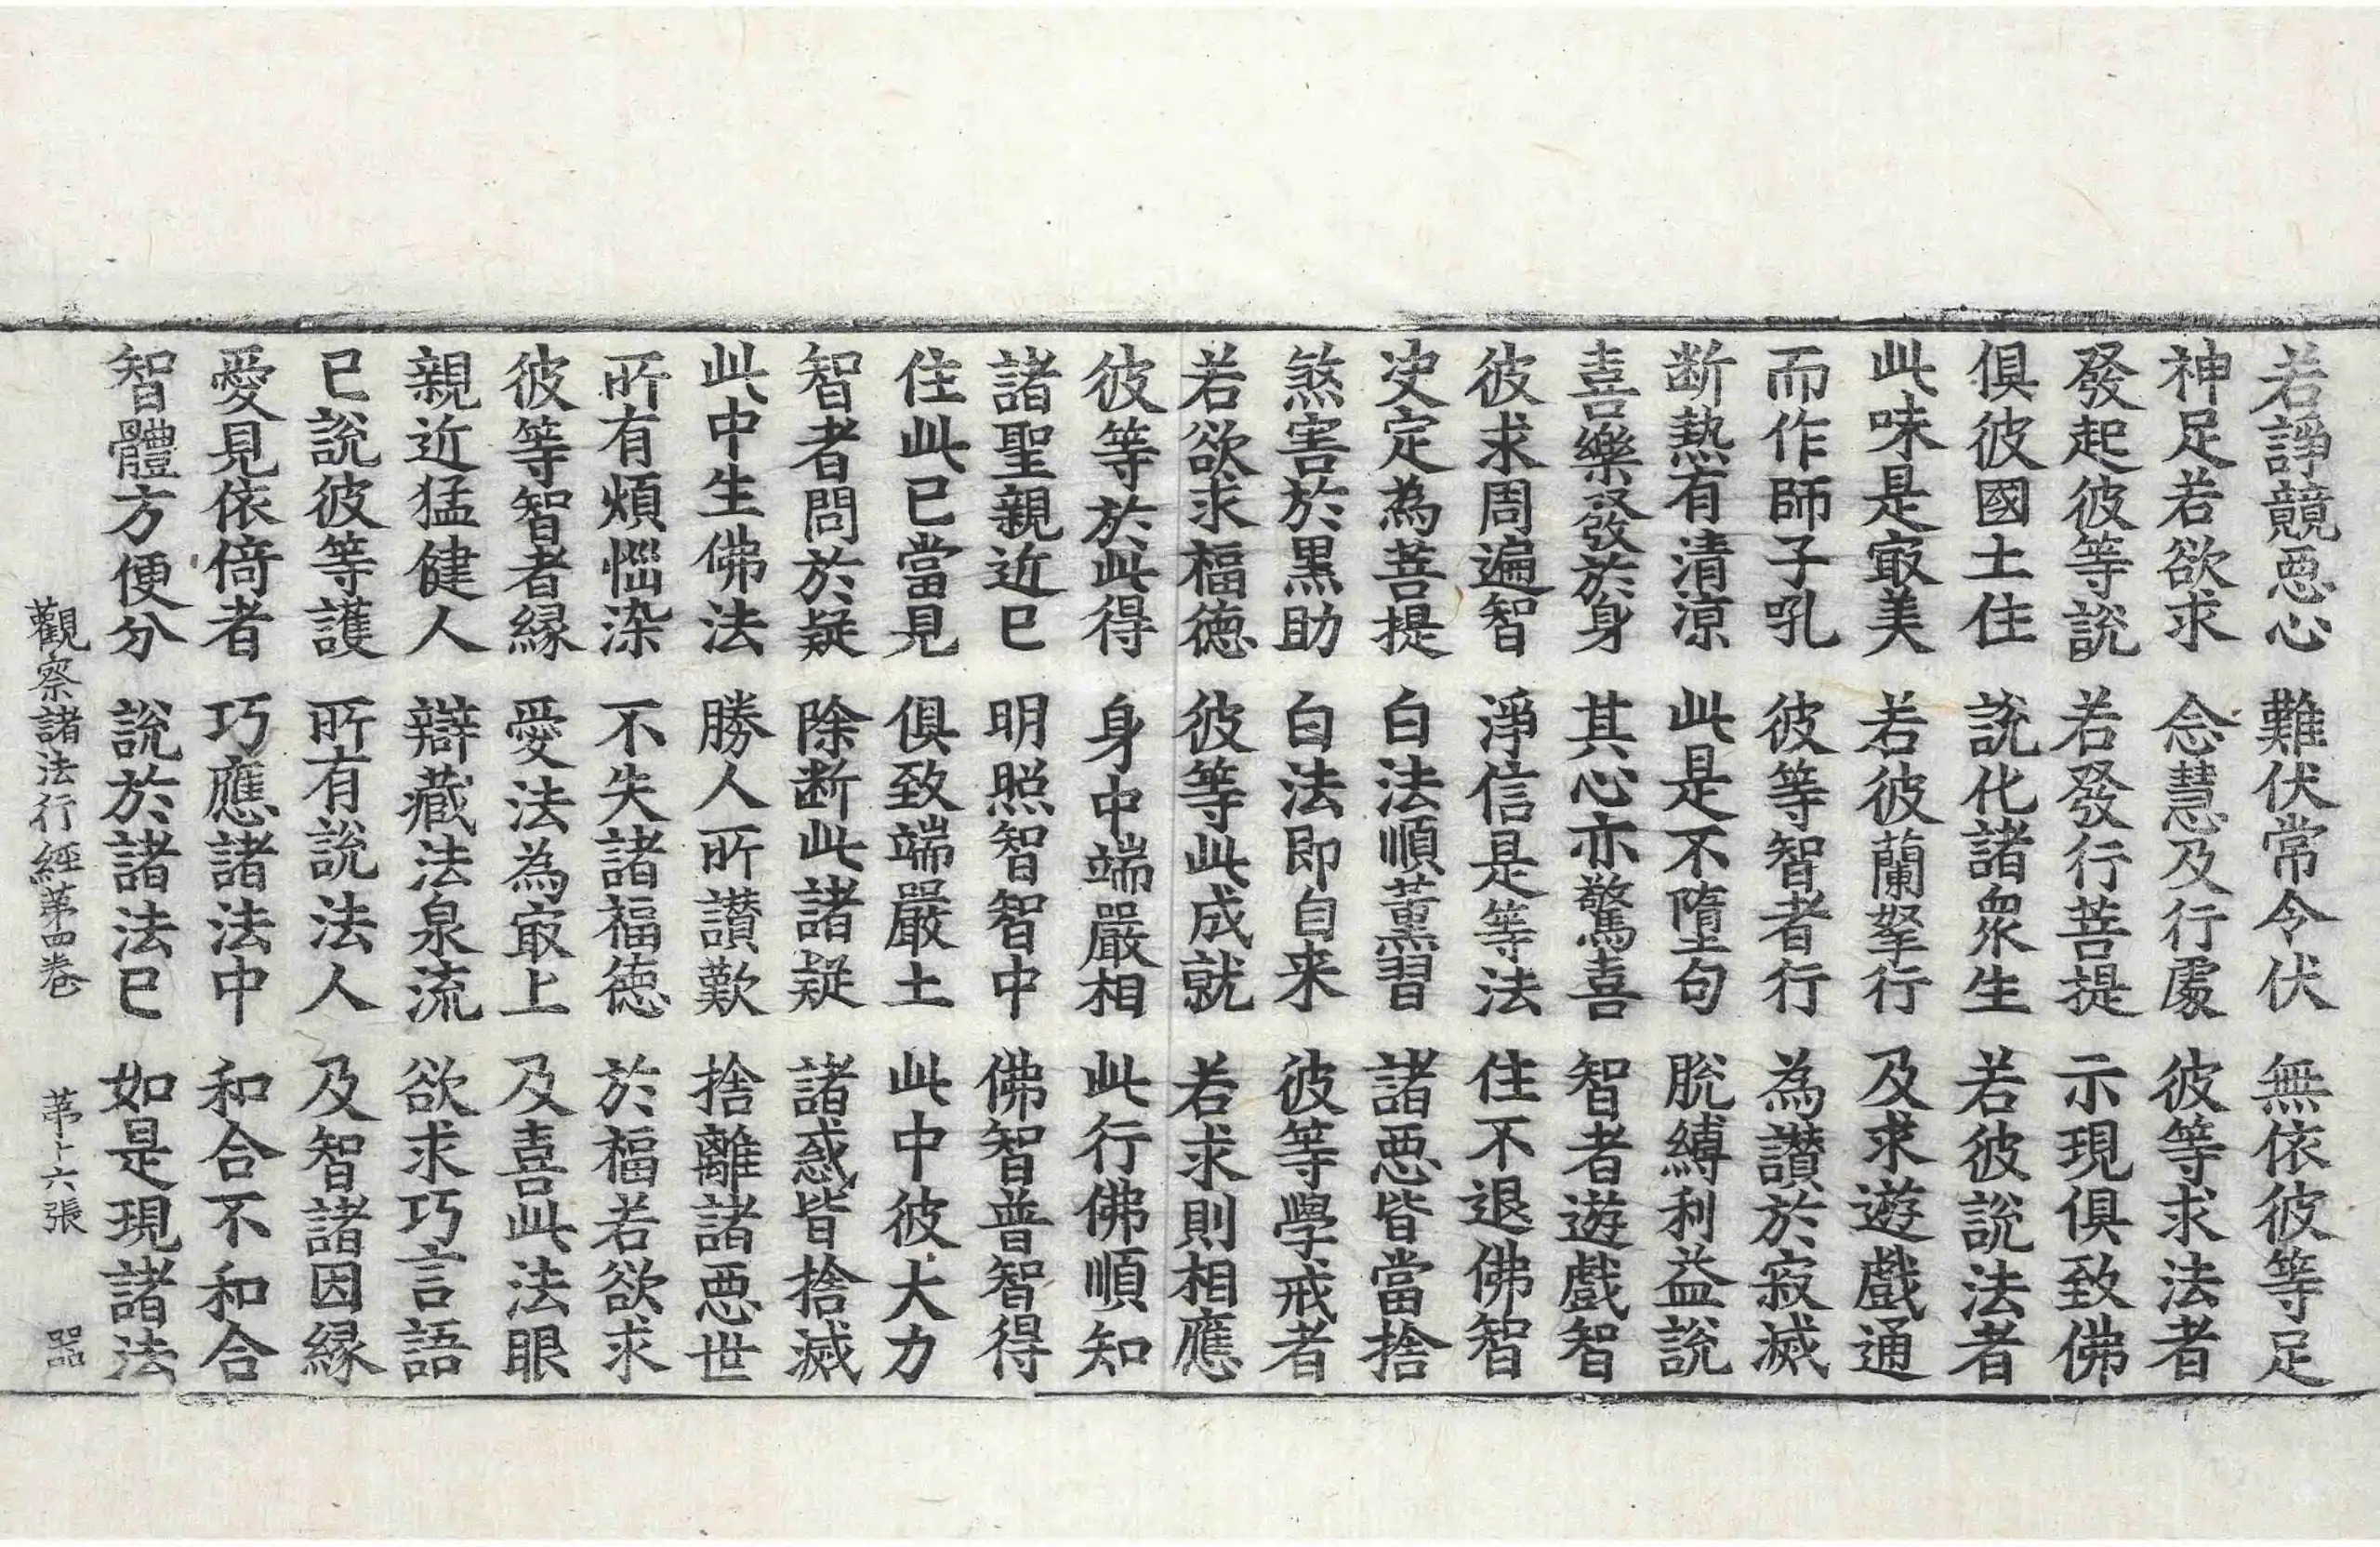 若諍競惡心 難伏常令伏 無依彼等足
神足若欲求 念慧及行處 彼等求法者
發起彼等說 若發行菩提 示現俱致佛
俱彼國土住 說化諸衆生 若彼說法者
此味是㝡美 若彼蘭拏行 及求遊戲通
而作師子吼 彼等智者行 為讃於寂滅
断熱有清涼 此是不墮句 脫縛利益說
喜樂發於身 其心亦驚喜 智者遊戲智
彼求周遍智 淨信是等法 住不退佛智
决定為菩提 白法順薰習 諸惡皆當捨
煞害於黒助 白法即自来 彼等學戒者
若欲求福德 彼等此成就 若求則相應
彼等於此得 身中端嚴相 此行佛順知
諸聖親近已 明照智智中 佛智普智得
住此已當見 俱致端嚴土 此中彼大力
智者問於疑 除断此諸疑 諸惑皆捨滅
此中生佛法 勝人所讃歎 捨離諸惡世
所有煩惱染 不失諸福德 於福若欲求
彼等智者縁 愛法為㝡上 及喜此法眼
親近猛健人 辯藏法泉流 欲求巧言語
已說彼等護 所有說法人 及智諸因縁
愛見依倚者 巧應諸法中 和合不和合
智體方便分 說於諸法已 如是現諸法
觀察諸法行經第四卷 第十六張 器